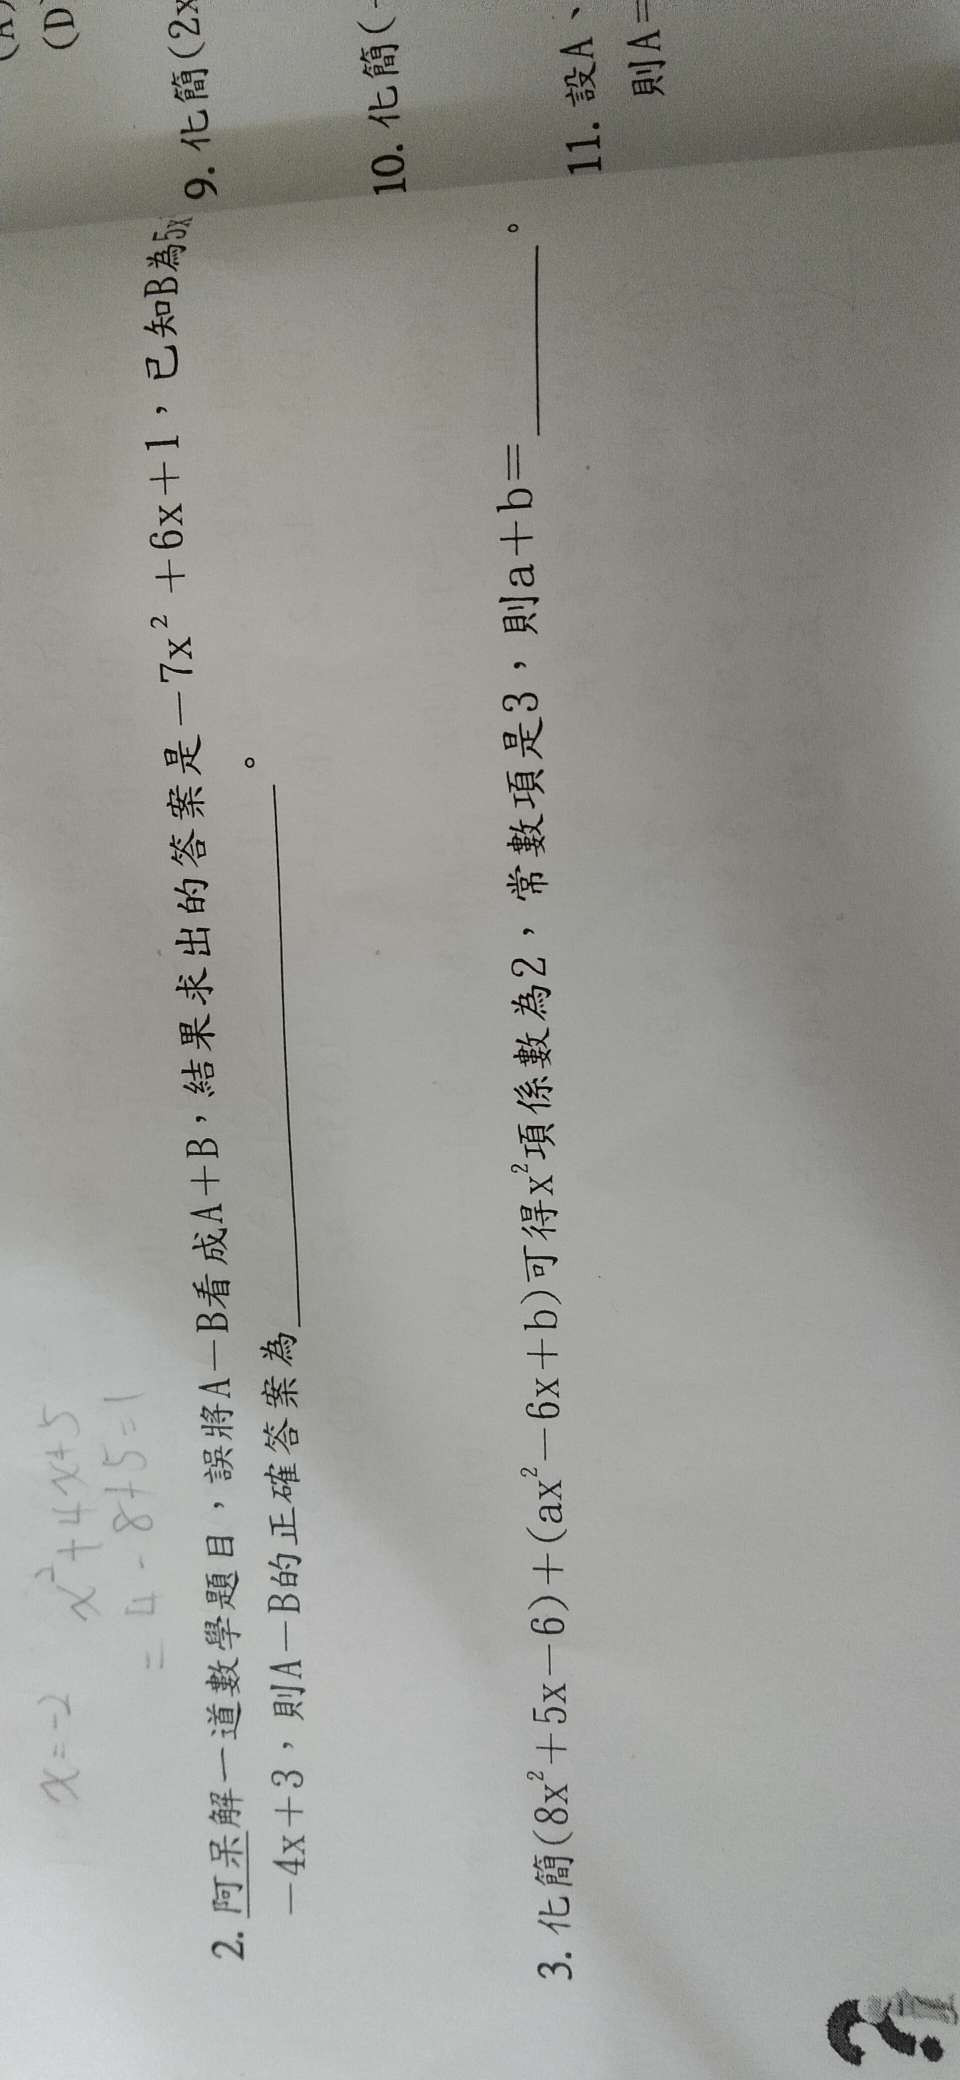 x=-2 x²+4x+5
=4-8+5=1
2. 阿呆解一道數學題目，誤將A－B看成A＋B，結果求出的答案是－7x²＋6x＋1，已知B為5x
－4x＋3，則A－B的正確答案為＿＿＿＿＿＿。
3. 化簡(8x²＋5x－6)＋(ax²－6x＋b)可得x²項係數為2，常數項是3，則a＋b＝＿＿＿。
(D
9. 化簡(2x
10. 化簡(
11. 設A、
則A＝
?